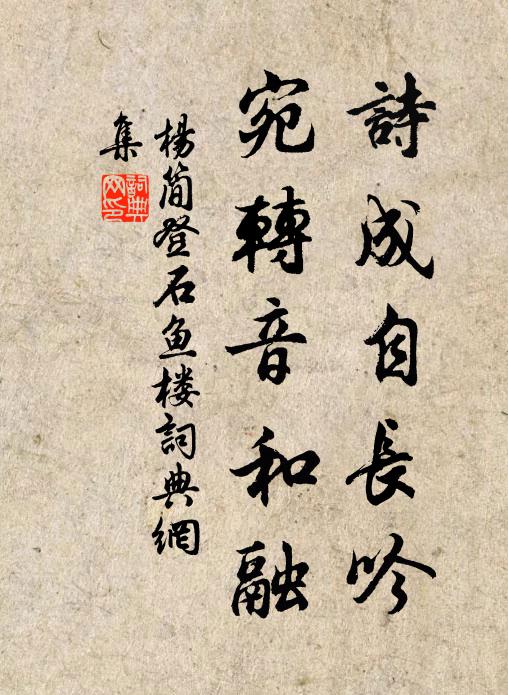 詩成自長吟
宛轉音和融
楊简登石鱼楼詞典網
集
詞典
网印